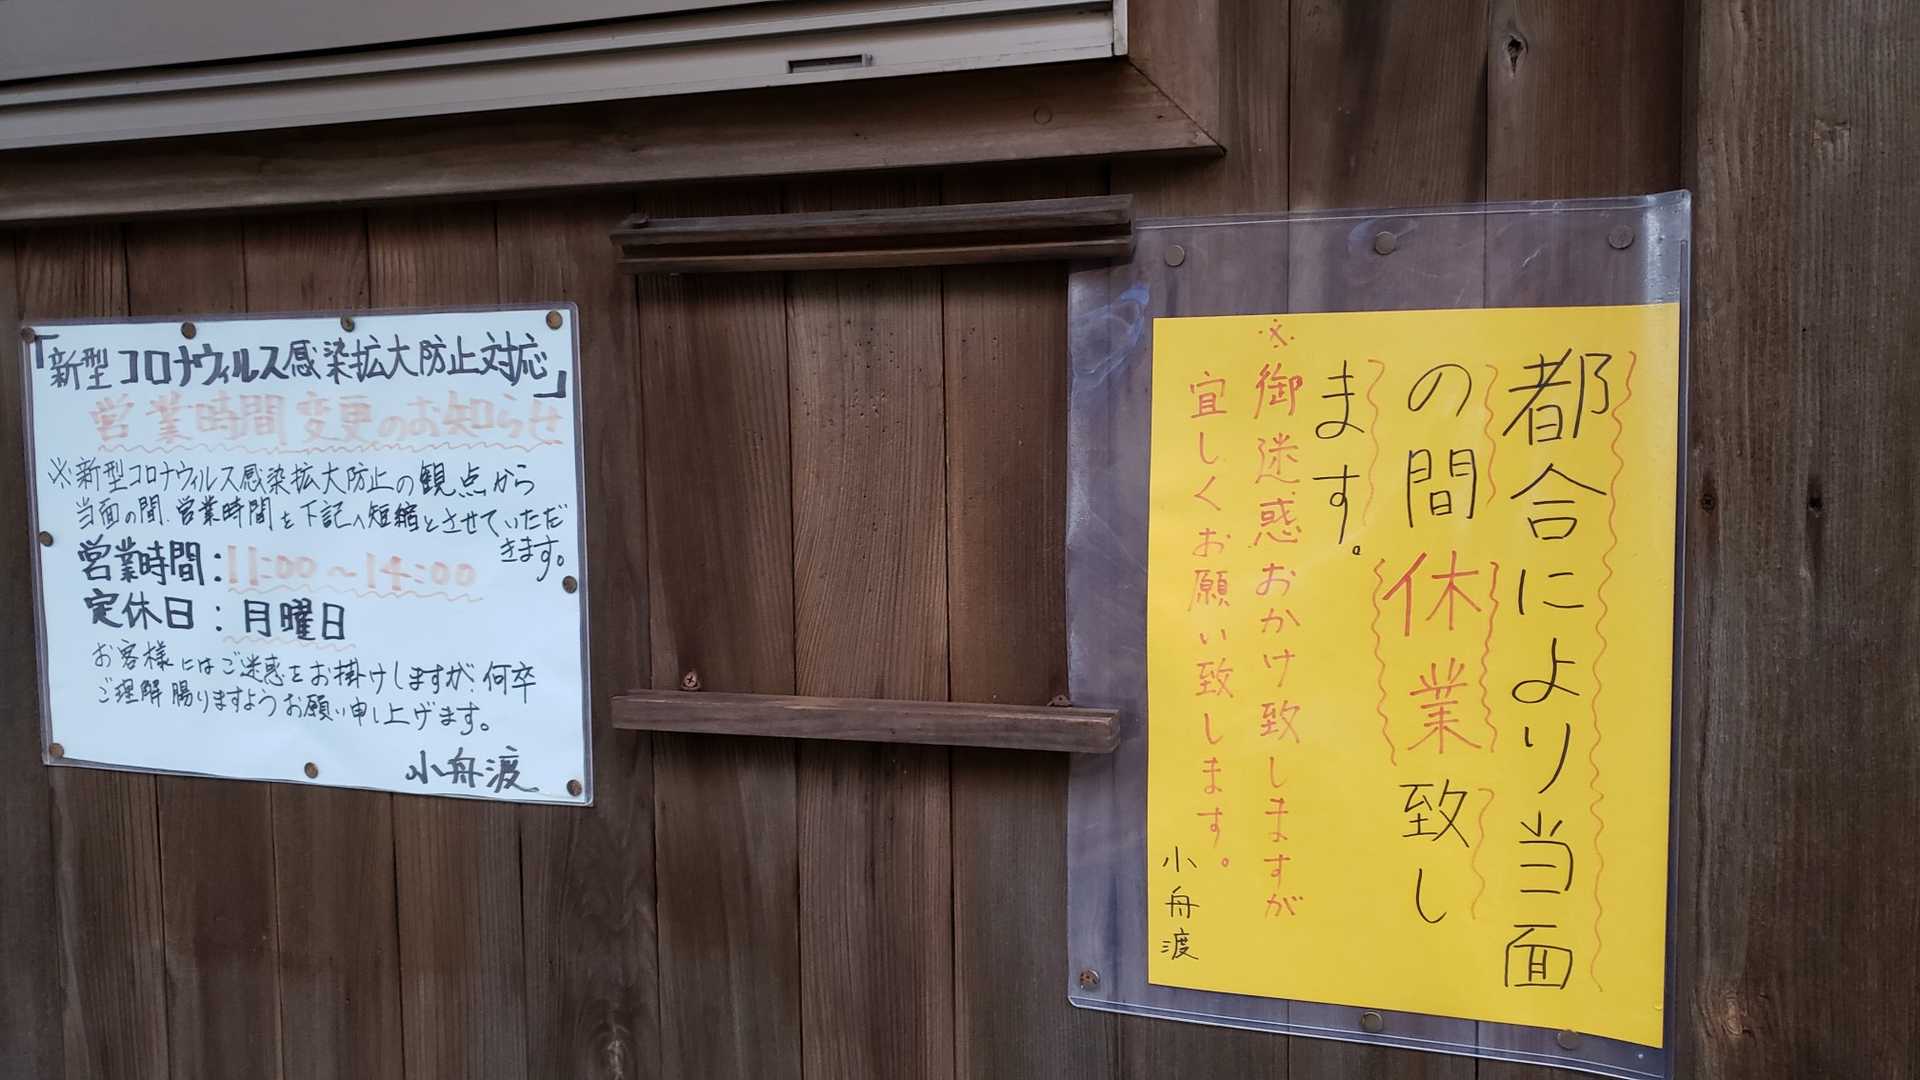 「新型コロナウィルス感染拡大防止対応」
営業時間変更のお知らせ
※新型コロナウィルス感染拡大防止の観点から
当面の間、営業時間を下記へ短縮とさせていただ
きます。
営業時間：11:00～14:00
定休日：月曜日
お客様にはご迷惑をお掛けしますが、何卒
ご理解賜りますようお願い申し上げます。
小舟渡
都合により当面
の間休業致し
ます。
※御迷惑おかけ致しますが
宜しくお願い致します。
小舟渡